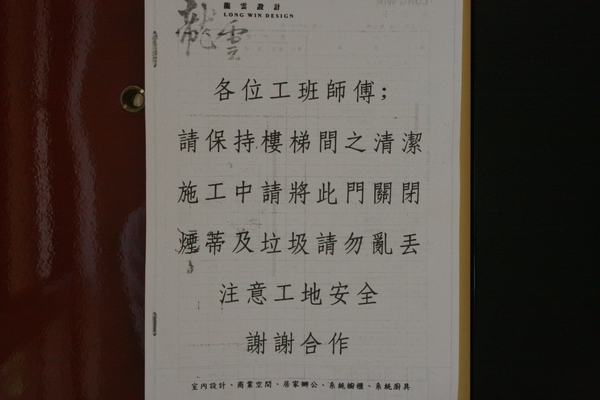 龍雲設計
LONG WIN DESIGN
龍雲
各位工班師傅;
請保持樓梯間之清潔
施工中請將此門關閉
煙蒂及垃圾請勿亂丟
注意工地安全
謝謝合作
室內設計、商業空間、居家辦公、系統櫥櫃、系統廚具